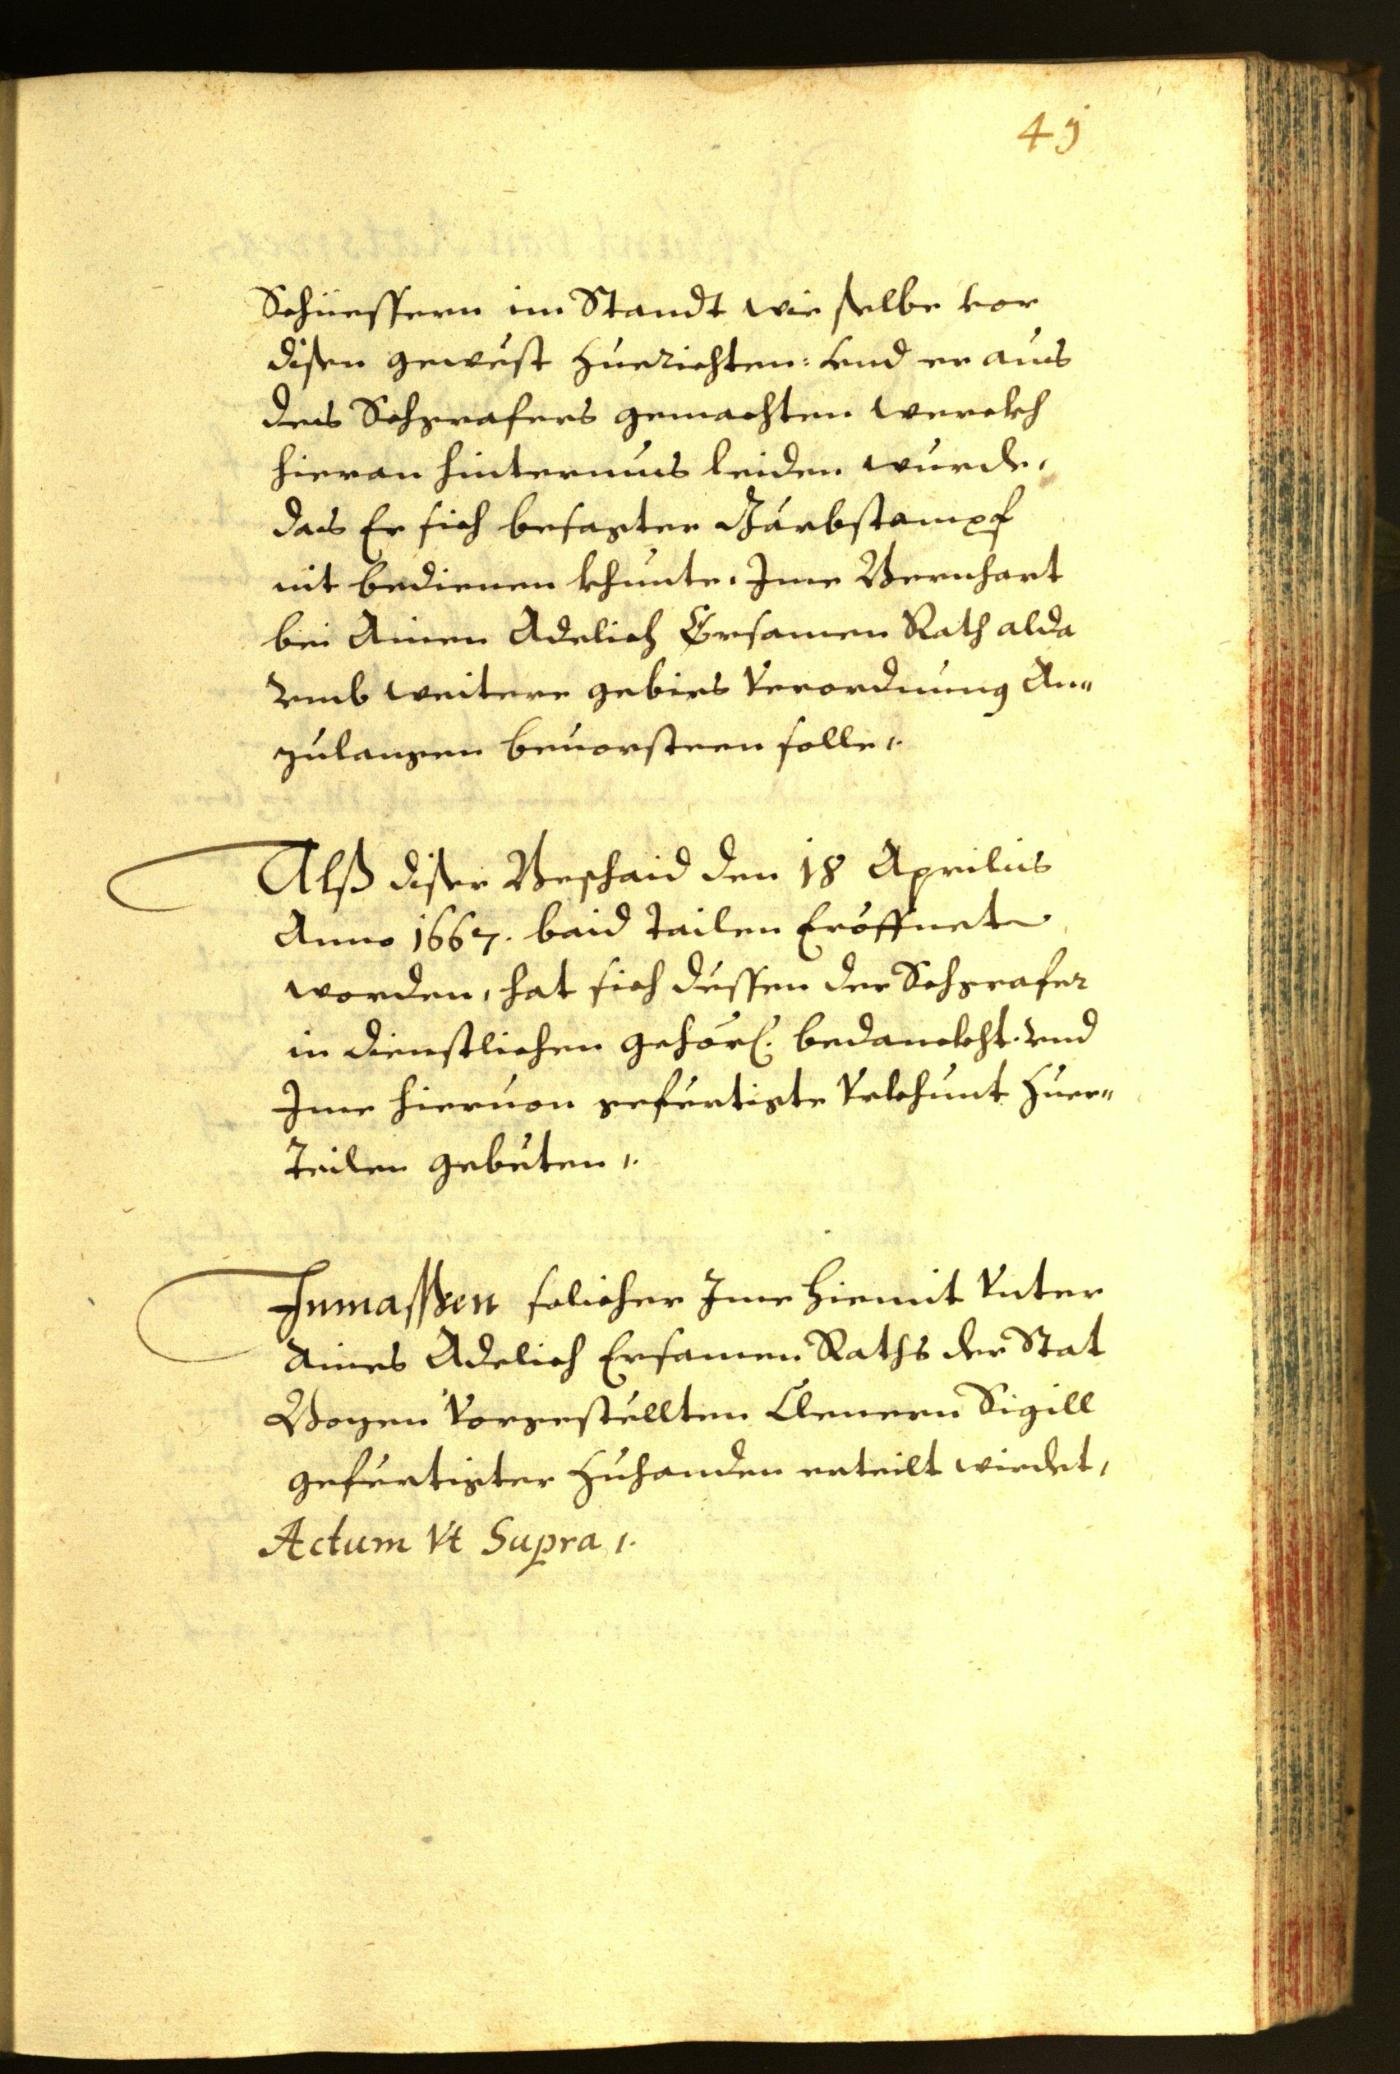 41
Schüessern im Standt wie selbe vor
disen gewest Zuerichten: vnd er aus
des Schgrafers gemachten werckh
hieran hinternus leiden wurde,
das Er sich besagter Gärbstampf
nit bedienen khunte. Ime Bernhart
bei Ainen Adelich Ersamen Rath alda
vmb weitere gebirs Verordnung An„
zulangen beuorsteen solle,.
Alß diser Beschaid den 18 Aprilis
Anno 1667. baid Tailen Eröffnet
worden, hat sich dessen der Schgrafer
in dienstlichen gehörl. bedanckht. vnd
Ime hieruon gefertigte Vrkhunt Zuer„
Teilen gebeten,.
Inmassen solicher Ime hiemit Vnter
Aines Adelich Ersamen Raths der Stat
Bozen Vorgestellten Clenern Sigill
gefertigter Zuhanden erteilt wirdet,
Actum Vt Supra,.